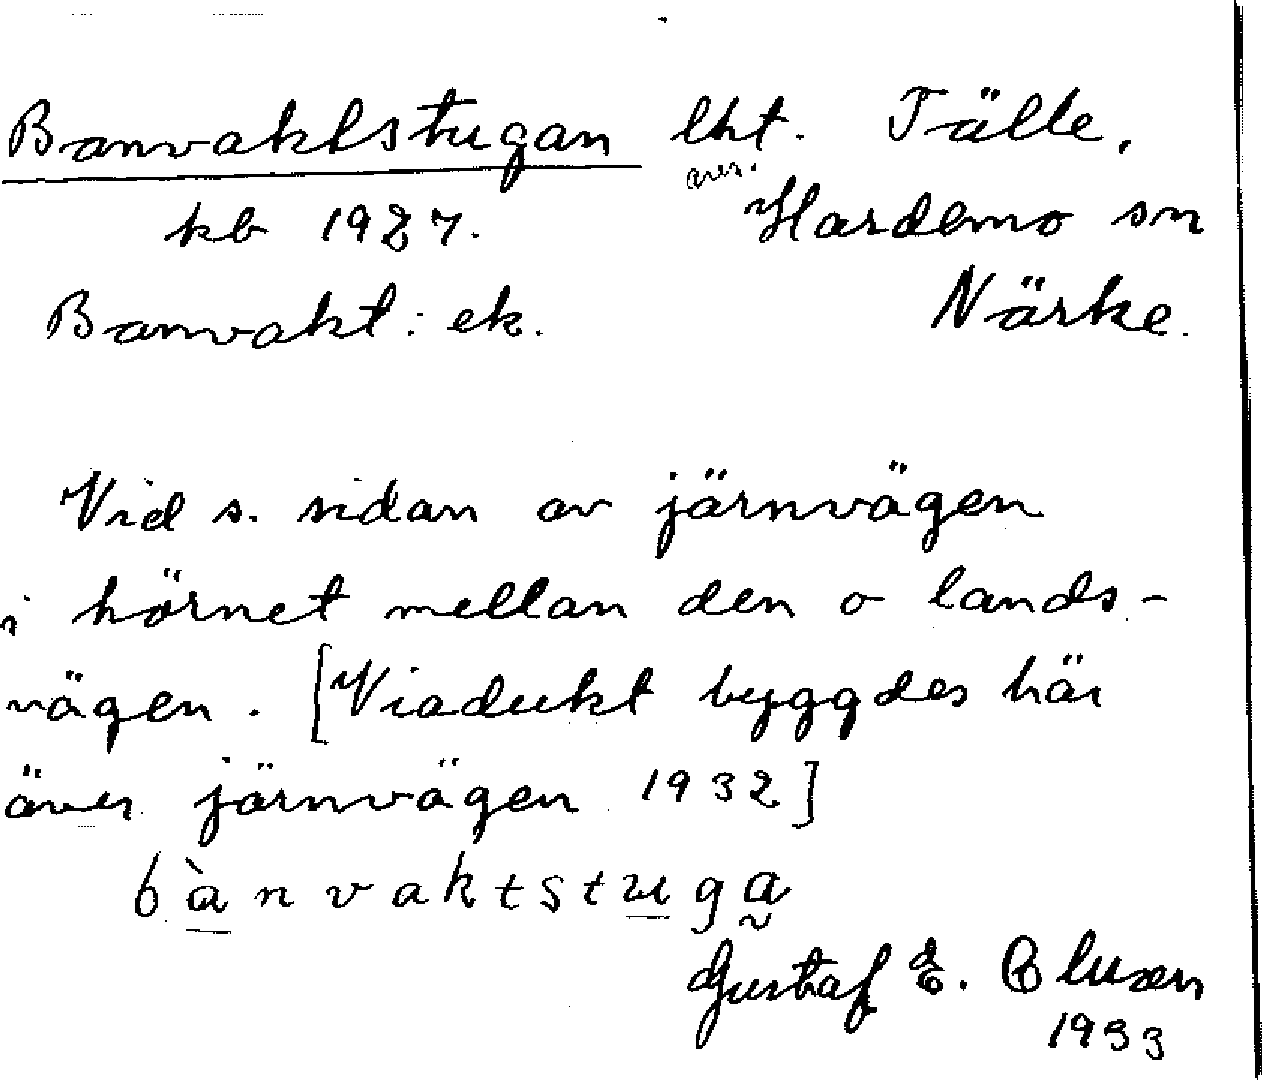 Banvaktstugan lht. Tälle,
avs. Hardemo sn
kb 1927. Närke.
Banvakt: ek.
Vid s. sidan av järnvägen
i hörnet mellan den o lands-
vägen. [Viadukt byggdes här
över järnvägen 1932]
bànvaktstuga
Gustaf E. Clusen
1933